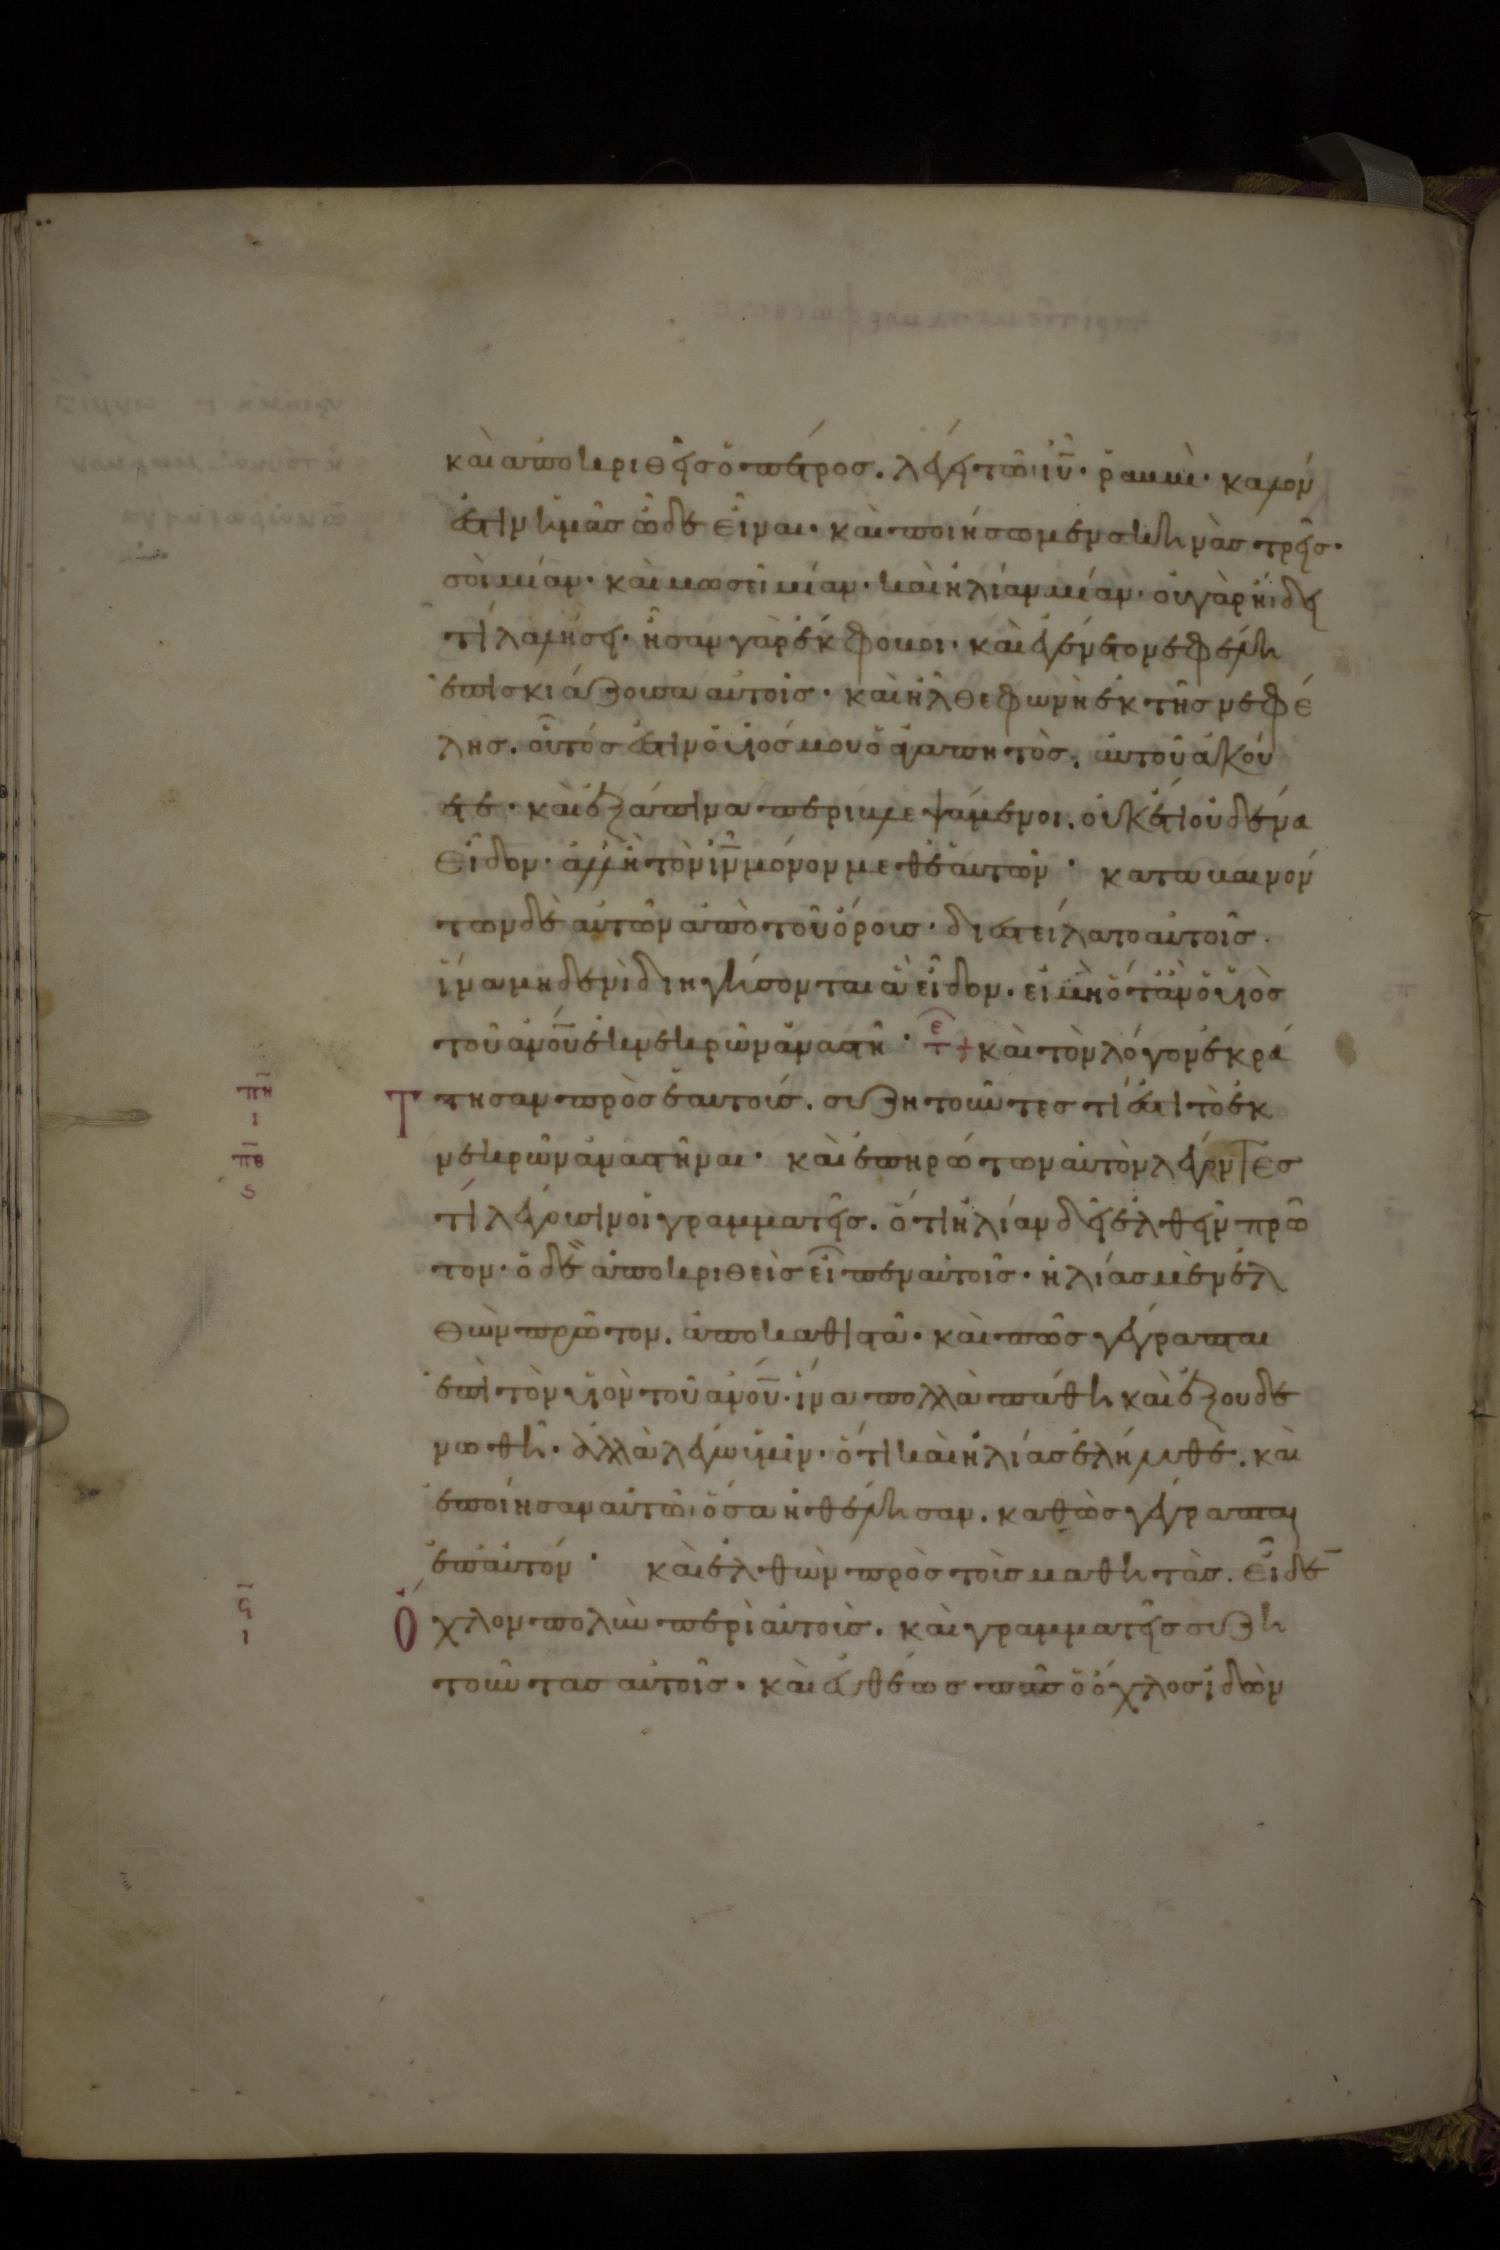 καὶ ἀποκριθεὶς ὁ πέτρος. λέγει τῶ ἰῦ. ῥαββὶ. καλόν
ἐστιν ἡμᾶς ὧδε εἶναι. καὶ ποιήσωμεν σκηνὰς τρεῖς.
σοὶ μίαν. καὶ μωσεῖ μίαν. καὶ ἠλίαν μίαν. οὐ γὰρ ἤιδει
τί λαλήσει. ἦσαν γὰρ ἔκφοβοι. καὶ ἐγένετο νεφέλη
ἐπισκιάζουσα αὐτοῖς. καὶ ἦλθε φωνὴ ἐκ τῆς νεφέ
λης. οὗτός ἐστιν ὁ υἱός μου ὁ ἀγαπητὸς. αὐτοῦ ἀκού
ετε. καὶ ἐξάπινα περιβλεψάμενοι. οὐκέτι οὐδένα
εἶδον. ἀλλὴ τὸν ἰν μόνον μεθ ἑαυτῶν. καταβαινόν
των δὲ αὐτῶν ἀπὸ τοῦ ὄρους. διεστείλατο αὐτοῖς.
ἵνα μηδενὶ διηγήσονται ἃ εἶδον. εἰ μὴ ὅτἂν ὁ υἱὸς
τοῦ ἀνου ἐκ νεκρῶν ἀναστῆ. τε + καὶ τὸν λόγον ἐκρά
πη
ι
Τ τησαν πρὸς ἑαυτούς. συζητοῦντες τί ἐστι τὸ ἐκ
πθ
ς
νεκρῶν ἀναστῆναι. καὶ ἐπηρώτων αὐτὸν λέγοντες
τί λέγουσιν οἱ γραμματεῖς. ὅτι ἠλίαν δεῖ ἐλθεῖν πρῶ
τον. ὁ δὲ ἀποκριθεὶς εἶπεν αὐτοῖς. ἠλίας μὲν ἐλ
θὼν πρῶτον. ἀποκαθιστᾶ. καὶ πῶς γέγραπται
ἐπὶ τὸν υἱὸν τοῦ ἀνου. ἵνα πολλὰ πάθη καὶ ἐξουδε
νωθῆ. ἀλλὰ λέγω ὑμῖν. ὅτι καὶ ἠλίας ἐλήλυθε. καὶ
ἐποίησαν αὐτῶ. ὅσα ἠθέλησαν. καθὼς γέγραπται
ἐπ αὐτόν. καὶ ἐλθὼν πρὸς τοὺς μαθητὰς. εἶδε
ϟ
ι
Ὄ χλον πολὺν περὶ αὐτοὺς. καὶ γραμματεῖς συζη
τοῦντας αὐτοῖς. καὶ εὐθέως πᾶς ὁ ὄχλος ἰδὼν